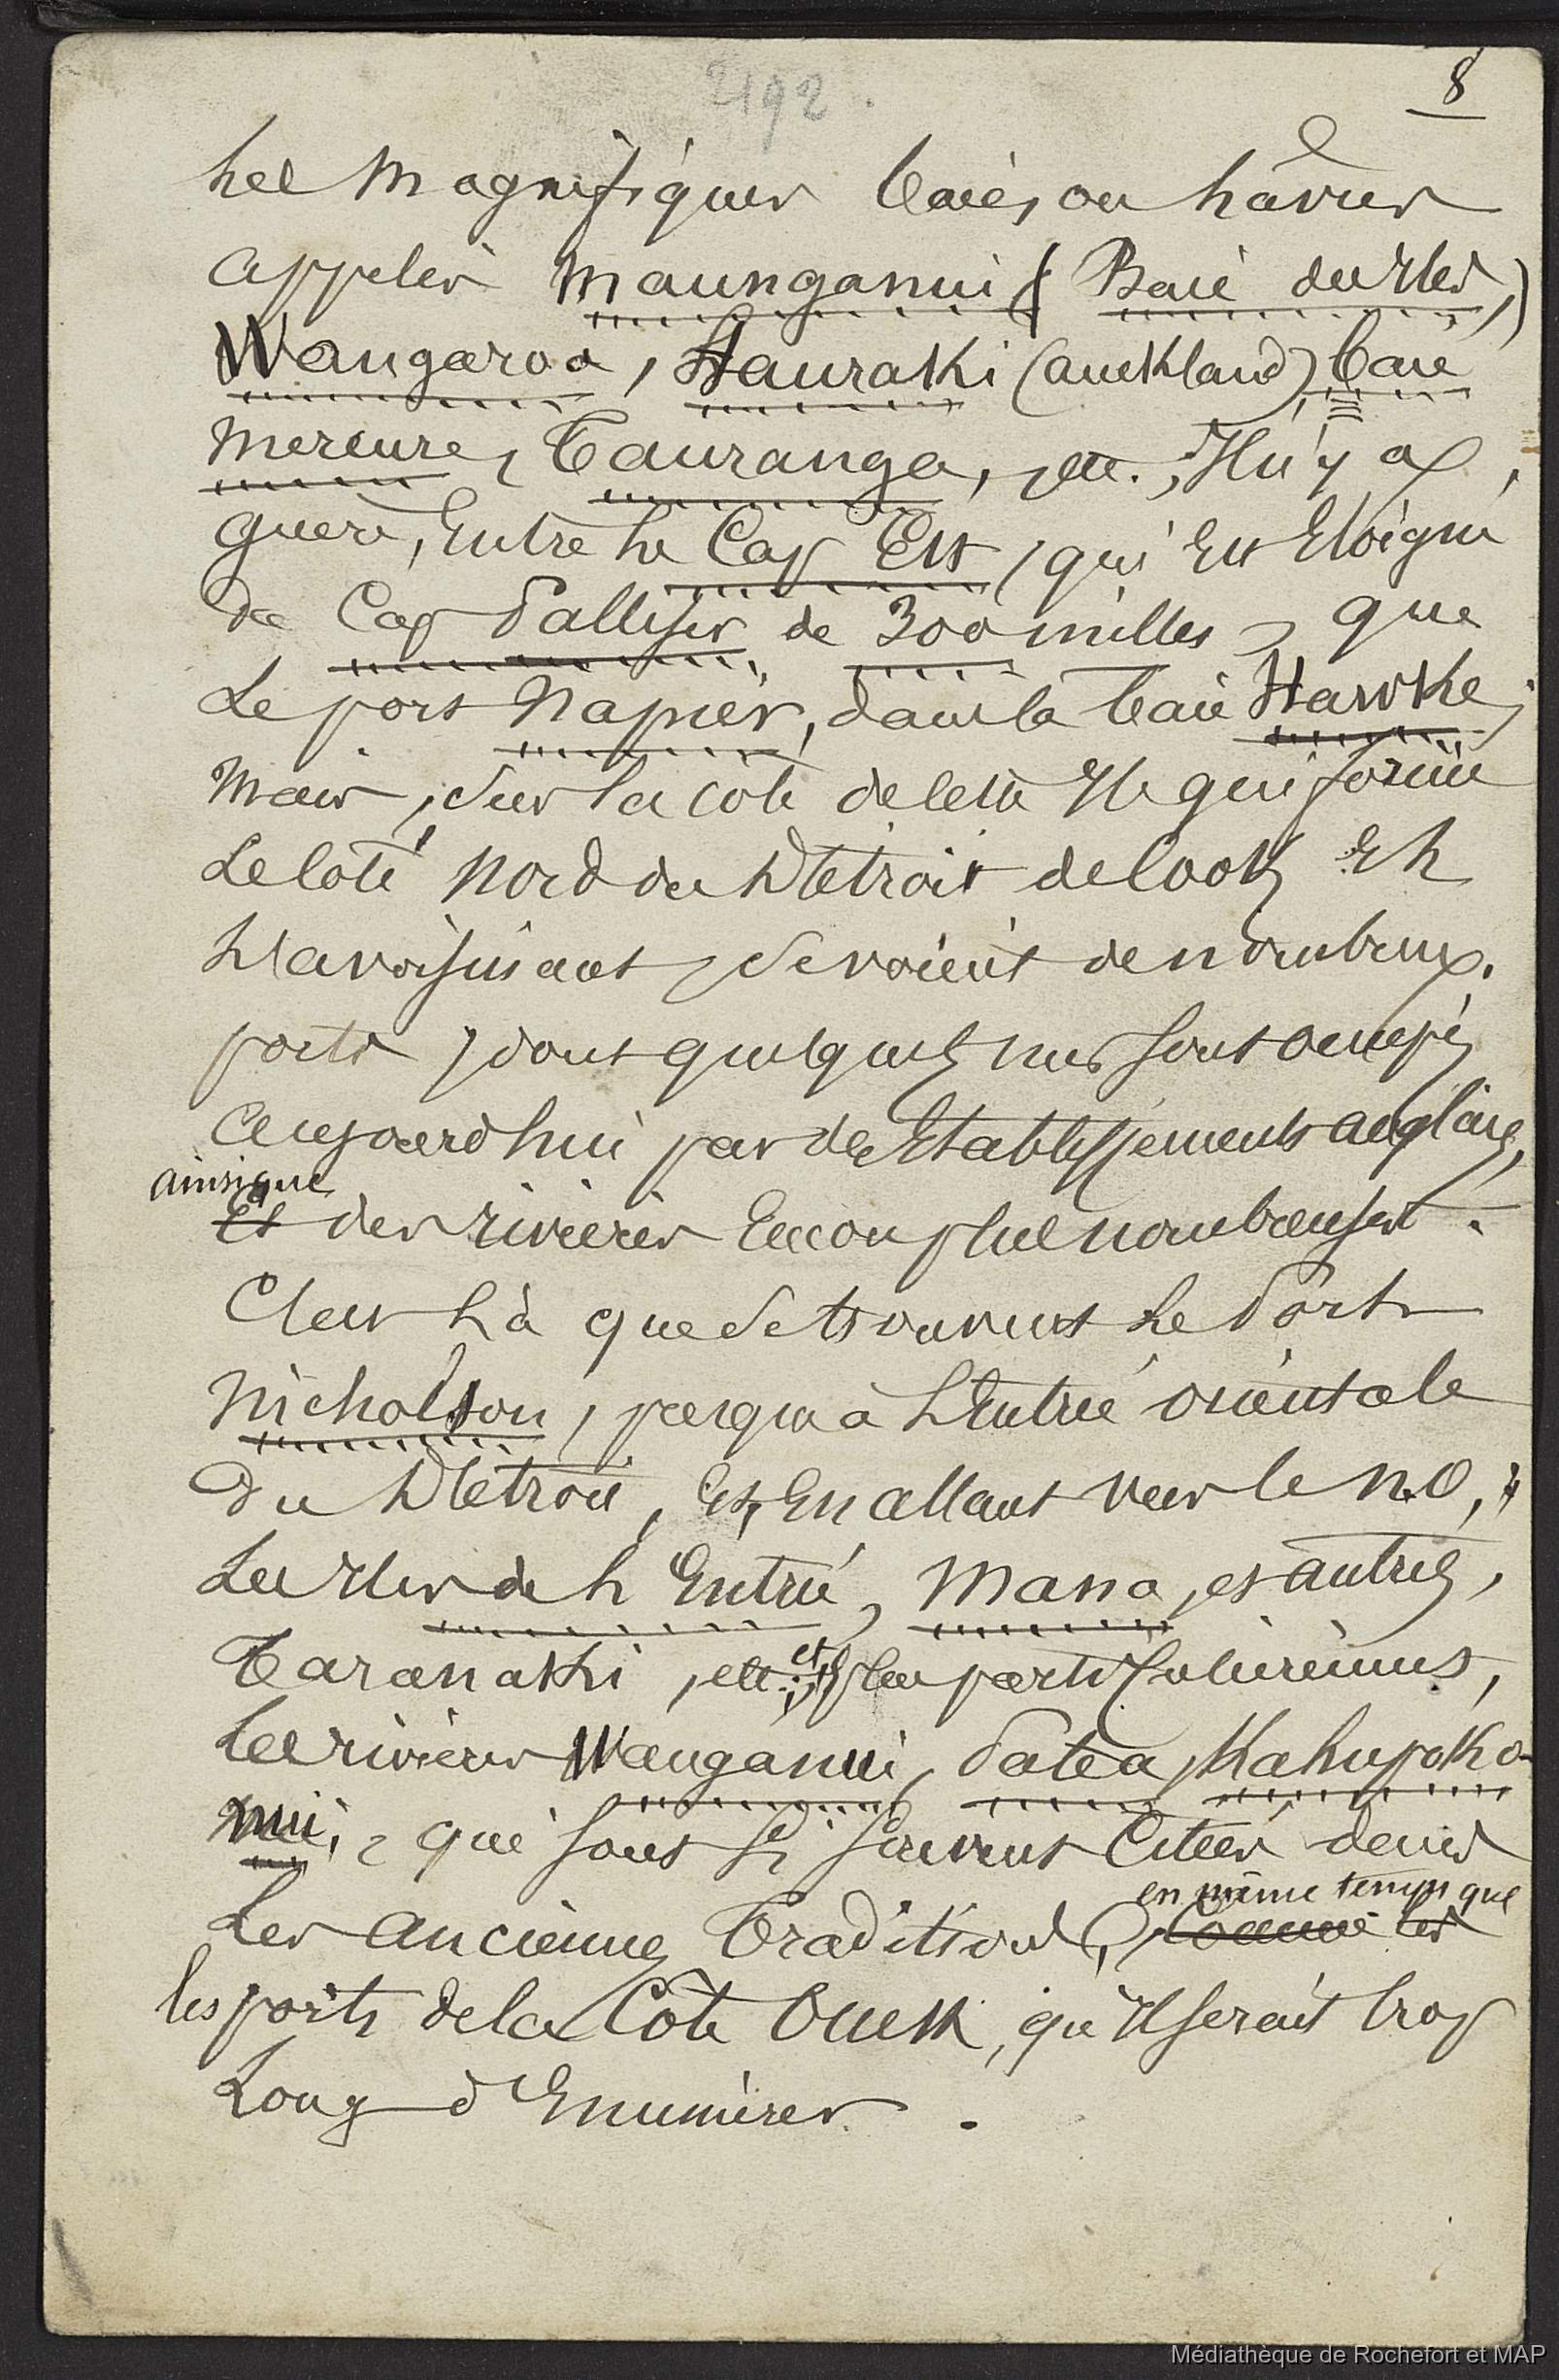 2192.
8
les magnifiques baies ou hâvres
appelés Maunganui (Baie des Iles,)
Wangaroa, Hauraki (auckland), baie
mercure, Tauranga, etc., Il n'y a
guère, entre le Cap Est, qui est éloigné
du Cap Palliser de 300 milles, que
Le port Napier, dans la baie Hawke;
Mais, sur la côte de cette Ile qui forme
Le côté Nord du Détroit de Cook et
L'avoisinant, se voient de nombreux
ports, dont quelques uns sont occupés
aujourd'hui par des Etablissements anglais,
ainsi que
Et des rivières encor plus nombreuses.
C'est Là que se trouvent Le Port
Nicholson, presqu'à L'Entrée orientale
du Détroit, Et, En allant vers le N.O,
Les Iles de L'Entrée, Mana, et autres,
Taranaki, etc.; et les ports
Les rivières Wanganui, Patea, Kahupoko-
nui, qui sont si souvent Citées dans
en même temps que
Les anciennes Traditions, comme les
les ports de la Côte Ouest, qu'Il serait trop
Long d'Enumérer.
Médiathèque de Rochefort et MAP